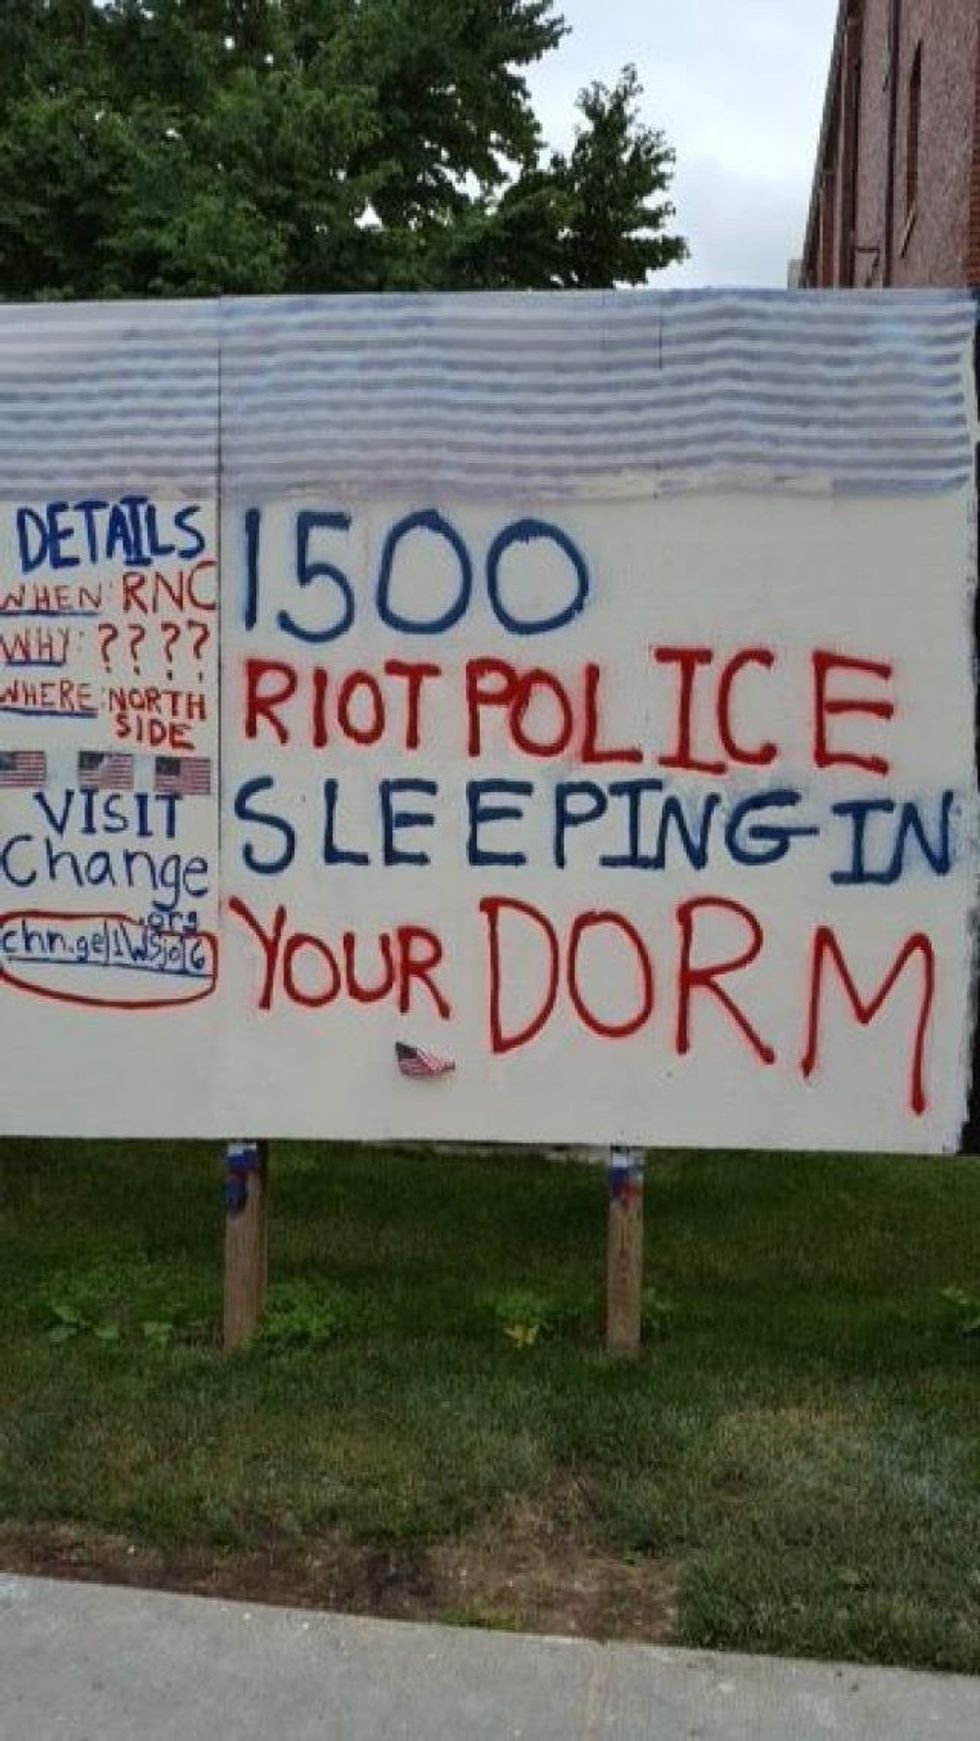 DETAILS
WHEN: RNC
WHY: ????
WHERE: NORTH
SIDE
VISIT
Change
.org
1500
RIOT POLICE
SLEEPING IN
YOUR DORM